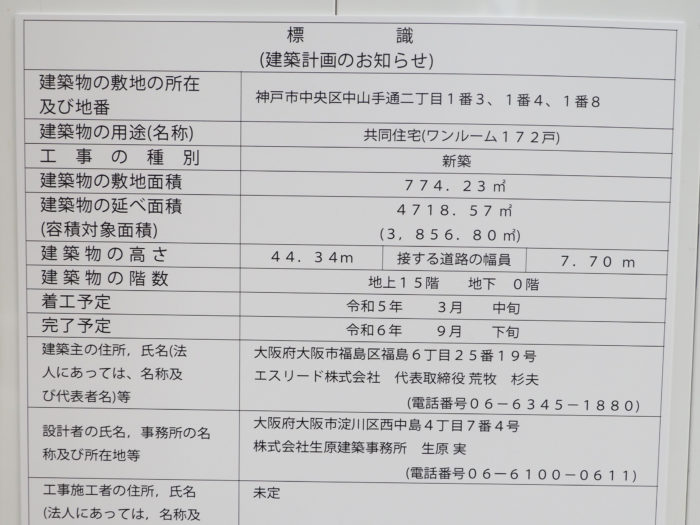 標　識
(建築計画のお知らせ)
建築物の敷地の所在
及び地番
神戸市中央区中山手通二丁目１番３、１番４、１番８
建築物の用途(名称)　共同住宅(ワンルーム１７２戸)
工事の種別　新築
建築物の敷地面積　７７４．２３㎡
建築物の延べ面積　４７１８．５７㎡
(容積対象面積)　(３，８５６．８０㎡)
建築物の高さ　４４．３４ｍ　接する道路の幅員　７．７０ ｍ
建築物の階数　地上１５階　地下　０階
着工予定　令和５年　３月　中旬
完了予定　令和６年　９月　下旬
建築主の住所，氏名(法
人にあっては、名称及
び代表者名)等
大阪府大阪市福島区福島６丁目２５番１９号
エスリード株式会社　代表取締役 荒牧　杉夫
(電話番号０６－６３４５－１８８０)
設計者の氏名，事務所の名
称及び所在地等
大阪府大阪市淀川区西中島４丁目７番４号
株式会社生原建築事務所　生原 実
(電話番号０６ー６１００－０６１１)
工事施工者の住所，氏名
(法人にあっては，名称及
未定